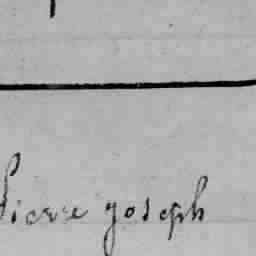 Pierre joseph